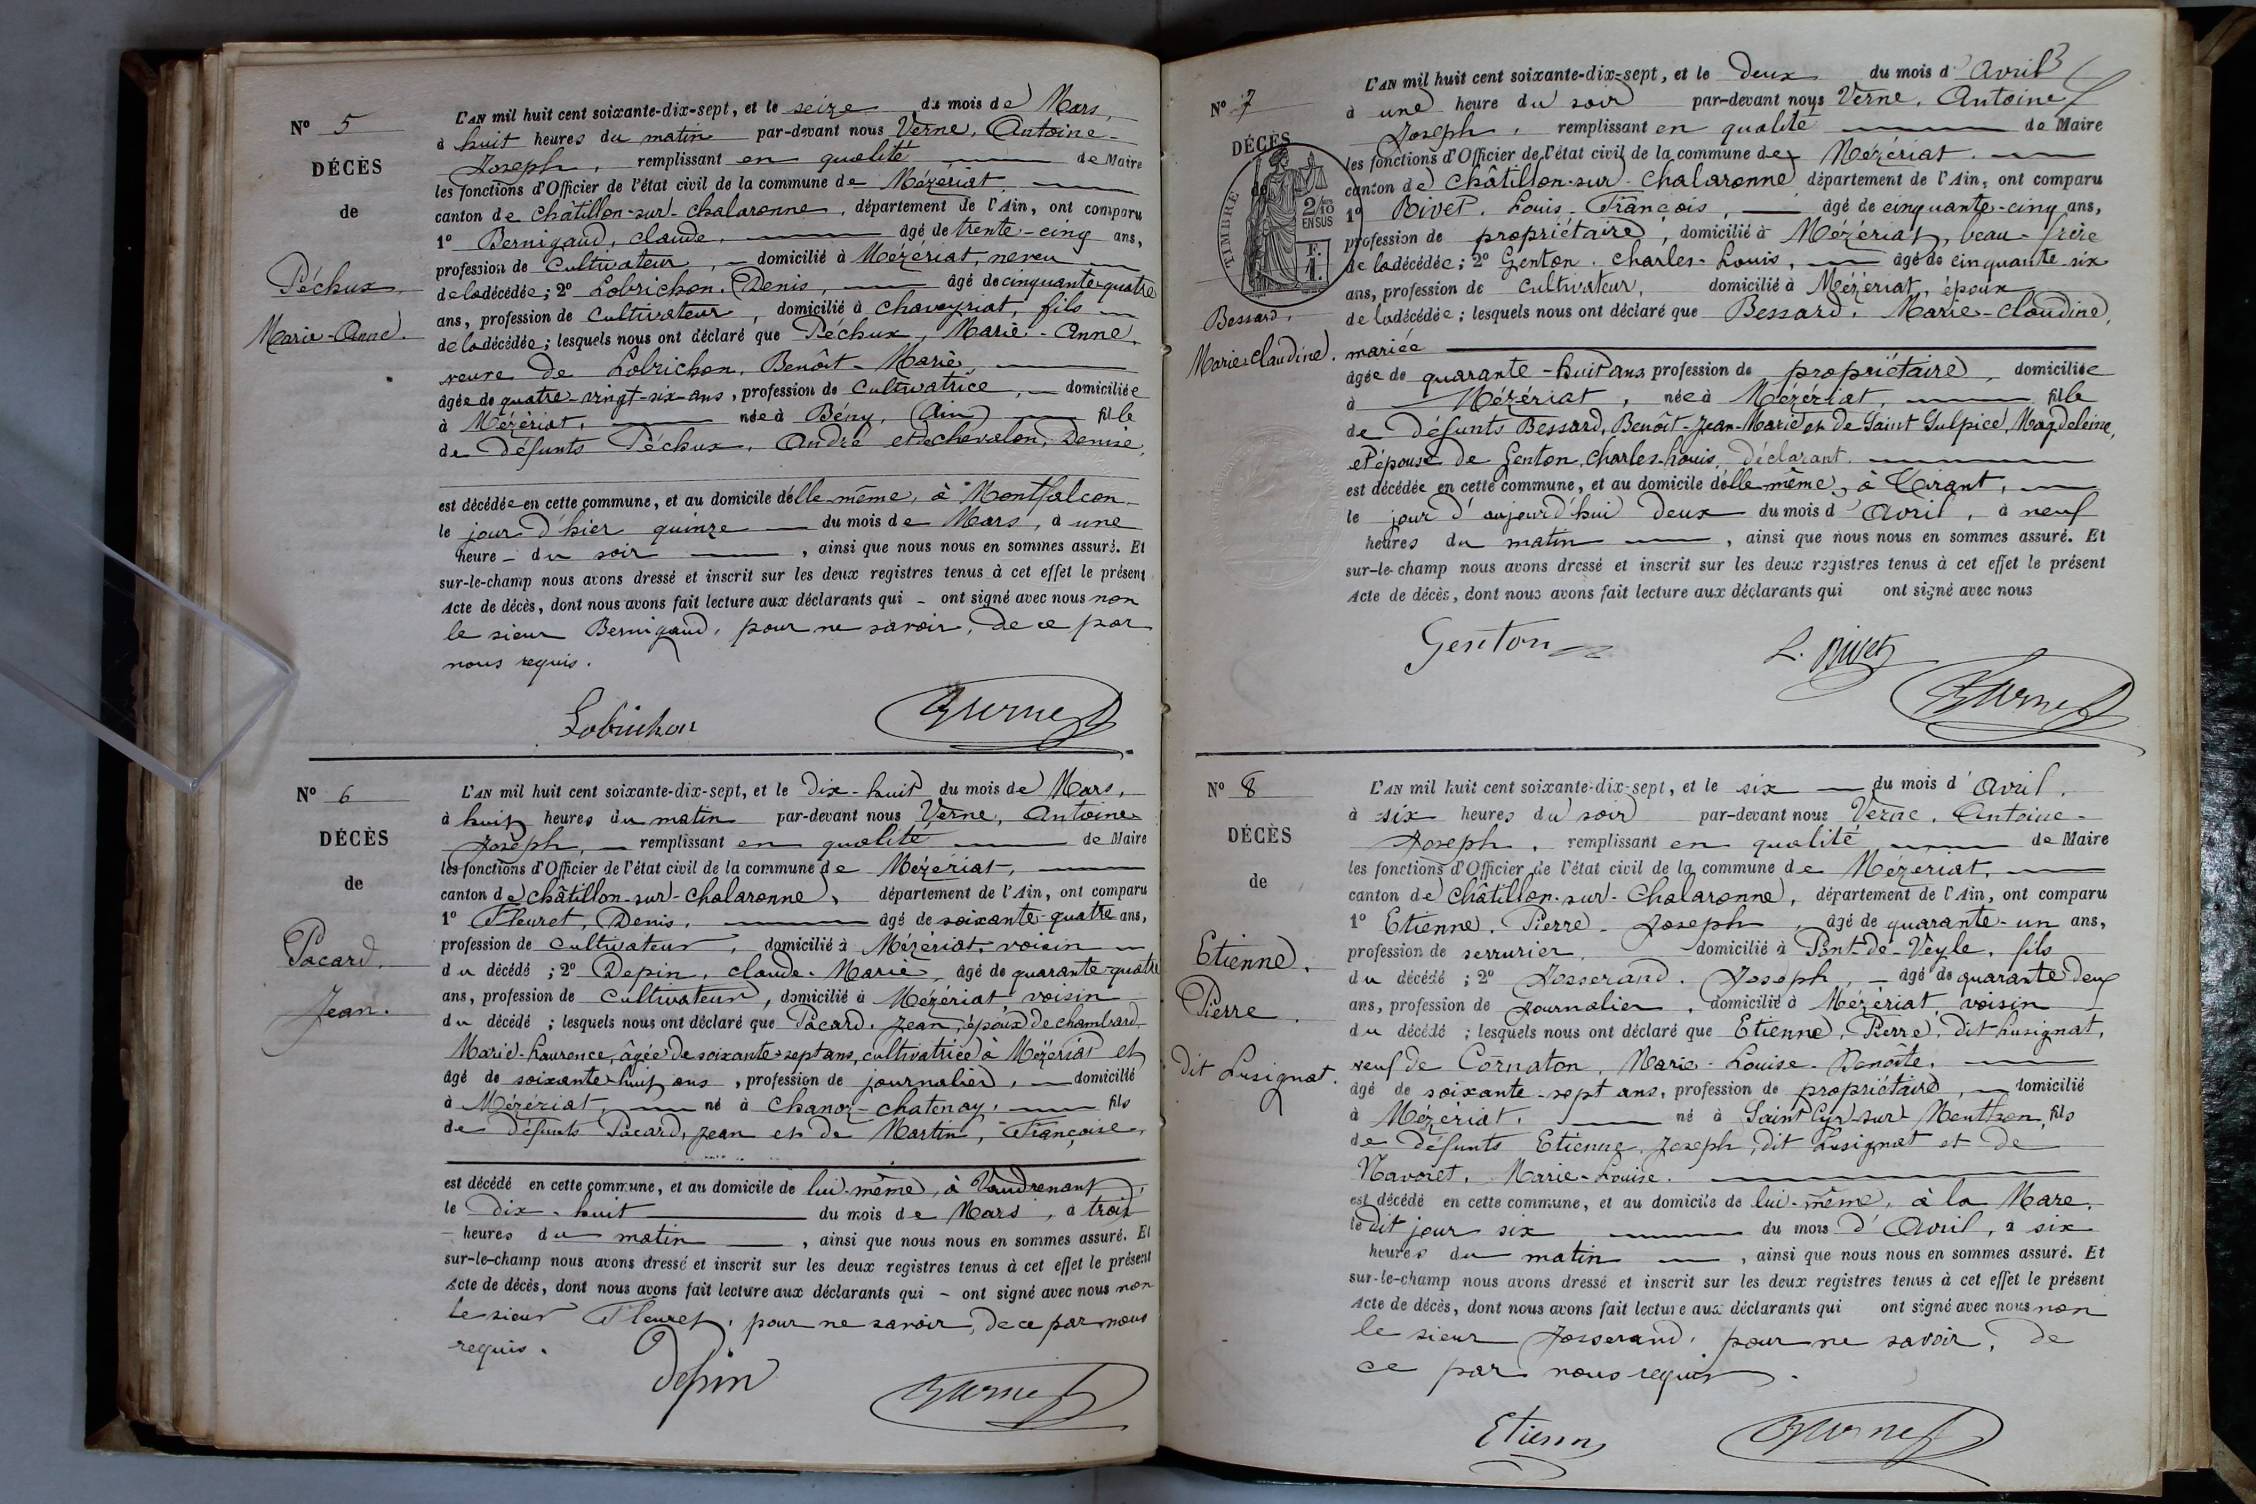 Nº 5
DÉCÈS
de
Péchux
Marie-Anne.
L'AN mil huit cent soixante-dix-sept, et le seize du mois de Mars,
à huit heures du matin par-devant nous Verne, Antoine-
Joseph, remplissant en qualité de Maire
les fonctions d'Officier de l'état civil de la commune de Mézériat,
canton de Châtillon-sur-Chalaronne, département de l'Ain, ont comparu
1º Bernigaud, Claude, âgé de trente-cinq ans,
profession de Cultivateur, domicilié à Mézériat, neveu
de la décédée; 2º Lobrichon, Denis, âgé de cinquante-quatre
ans, profession de Cultivateur, domicilié à Chaveyriat, fils
de la décédée; lesquels nous ont déclaré que Péchux, Marie-Anne,
veuve de Lobrichon, Benoît-Marie,
âgée de quatre-vingt-six-ans, profession de Cultivatrice, domiciliée
à Mézériat, née à Bény, (Ain) fille
de défunts Péchux, André et de Chevalon, Denise,
est décédée en cette commune, et au domicile d'elle-même, à Montfalcon,
le jour d'hier quinze du mois de Mars, à une
heure du soir, ainsi que nous nous en sommes assuré. Et
sur-le-champ nous avons dressé et inscrit sur les deux registres tenus à cet effet le présent
Acte de décès, dont nous avons fait lecture aux déclarants qui - ont signé avec nous non
le sieur Bernigaud, pour ne savoir, de ce par
nous requis.
Lobrichon A Verne
Nº 6
DÉCÈS
de
Pacard,
Jean.
L'AN mil huit cent soixante-dix-sept, et le Dix-huit du mois de Mars,
à huit heures du matin par-devant nous Verne, Antoine
Joseph, remplissant en qualité de Maire
les fonctions d'Officier de l'état civil de la commune de Mézériat,
canton de Châtillon-sur-Chalaronne, département de l'Ain, ont comparu
1º Fleuret, Denis, âgé de soixante-quatre ans,
profession de Cultivateur, domicilié à Mézériat, voisin
du décédé; 2º Depin, Claude-Marie, âgé de quarante-quatre
ans, profession de Cultivateur, domicilié à Mézériat, voisin
du décédé; lesquels nous ont déclaré que Pacard, Jean, époux de Chambard,
Marie-Laurence, âgée de soixante-sept ans, cultivatrice à Mézériat et
âgé de soixante-huit ans, profession de journalier, domicilié
à Mézériat, né à Chanoz-Chatenay, fils
de défunts Pacard, Jean et de Martin, Françoise,
est décédé en cette commune, et au domicile de lui-même, à Vaudrenant,
le Dix-huit du mois de Mars, à trois
heures du matin, ainsi que nous nous en sommes assuré. Et
sur-le-champ nous avons dressé et inscrit sur les deux registres tenus à cet effet le présent
Acte de décès, dont nous avons fait lecture aux déclarants qui - ont signé avec nous non
le sieur Fleuret, pour ne savoir, de ce par nous
requis.
Depin A Verne
Nº 7
DÉCÈS
de
TIMBRE
2/10
EN SUS
F.
1.
Bessard,
Marie Claudine.
L'AN mil huit cent soixante-dix-sept, et le deux du mois d'Avril
à une heure du soir par-devant nous Verne, Antoine
Joseph, remplissant en qualité de Maire
les fonctions d'Officier de l'état civil de la commune de Mézériat,
canton de Châtillon-sur-Chalaronne, département de l'Ain, ont comparu
1º Rivet, Louis-François, âgé de cinquante-cinq ans,
profession de propriétaire, domicilié à Mézériat, beau-frère
de la décédée; 2º Genton, Charles-Louis, âgé de cinquante-six
ans, profession de Cultivateur, domicilié à Mézériat, époux
de la décédée; lesquels nous ont déclaré que Bessard, Marie-Claudine,
mariée
âgée de quarante-huit ans, profession de propriétaire, domiciliée
à Mézériat, née à Mézériat, fille
de défunts Bessard, Benoît-Jean-Marie et de Saint Sulpice, Magdeleine,
et épouse de Genton, Charles-Louis, déclarant.
est décédée en cette commune, et au domicile d'elle même, à Tirant,
le jour d'aujourd'hui deux du mois d'Avril, à neuf
heures du matin, ainsi que nous nous en sommes assuré. Et
sur-le-champ nous avons dressé et inscrit sur les deux registres tenus à cet effet le présent
Acte de décès, dont nous avons fait lecture aux déclarants qui ont signé avec nous
Genton L. Rivet
A Verne
Nº 8
DÉCÈS
de
Etienne,
Pierre,
dit Lusignat.
L'AN mil huit cent soixante-dix-sept, et le six du mois d'Avril,
à six heures du soir par-devant nous Verne, Antoine-
Joseph, remplissant en qualité de Maire
les fonctions d'Officier de l'état civil de la commune de Mézériat,
canton de Châtillon-sur-Chalaronne, département de l'Ain, ont comparu
1º Etienne, Pierre-Joseph, âgé de quarante-un ans,
profession de serrurier, domicilié à Pont-de-Veyle, fils
du décédé; 2º Josserand, Joseph, âgé de quarante-deux
ans, profession de Journalier, domicilié à Mézériat, voisin
du décédé; lesquels nous ont déclaré que Etienne, Pierre, dit Lusignat,
veuf de Cornaton, Marie-Louise-Benoîte,
âgé de soixante-sept ans, profession de propriétaire, domicilié
à Mézériat, né à Saint Cyr-sur-Menthon, fils
de défunts Etienne, Joseph, dit Lusignat et de
Navoret, Marie-Louise.
est décédé en cette commune, et au domicile de lui-même, à la Mare,
le dit jour six du mois d'Avril, à six
heures du matin, ainsi que nous nous en sommes assuré. Et
sur-le-champ nous avons dressé et inscrit sur les deux registres tenus à cet effet le présent
Acte de décès, dont nous avons fait lecture aux déclarants qui ont signé avec nous non
le sieur Josserand, pour ne savoir, de
ce par nous requis.
Etienne A Verne